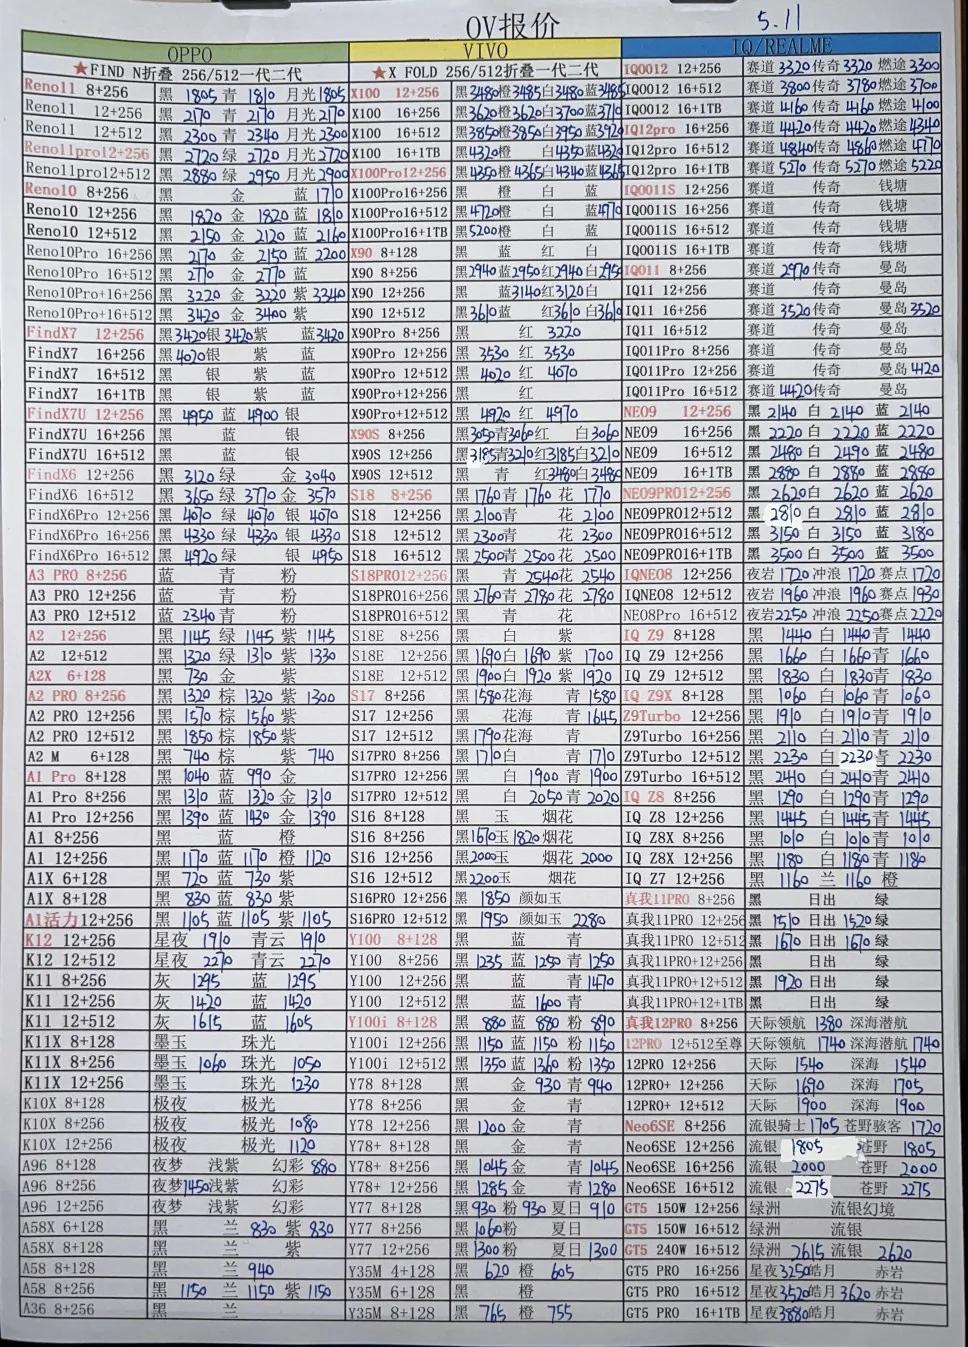 OV报价
5.11
OPPO
★FIND N折叠 256/512一代二代
Reno11 8+256 黑 1805 青 1810 月光 1805
Reno11 12+256 黑 2170 青 2170 月光 2170
Reno11 12+512 黑 2300 青 2340 月光 2300
Reno11pro12+256 黑 2720 绿 2720 月光 2720
Reno11pro12+512 黑 2880 绿 2950 月光 2900
Reno10 8+256 黑 金 蓝 1710
Reno10 12+256 黑 1820 金 1820 蓝 1810
Reno10 12+512 黑 2150 金 2120 蓝 2160
Reno10Pro 16+256 黑 2170 金 2150 蓝 2200
Reno10Pro 16+512 黑 2770 金 2770 蓝
Reno10Pro+16+256 黑 3220 金 3220 紫 3340
Reno10Pro+16+512 黑 3420 金 3400 紫
FindX7 12+256 黑 3420 银 3420 紫 蓝 3420
FindX7 16+256 黑 4020 银 紫 蓝
FindX7 16+512 黑 银 紫 蓝
FindX7 16+1TB 黑 银 紫 蓝
FindX7U 12+256 黑 4950 蓝 4900 银
FindX7U 16+256 黑 蓝 银
FindX7U 16+512 黑 蓝 银
FindX6 12+256 黑 3120 绿 金 3040
FindX6 16+512 黑 3650 绿 3770 金 3570
FindX6Pro 12+256 黑 4070 绿 4070 银 4070
FindX6Pro 16+256 黑 4330 绿 4330 银 4330
FindX6Pro 16+512 黑 4920 绿 银 4950
A3 PRO 8+256 蓝 青 粉
A3 PRO 12+256 蓝 青 粉
A3 PRO 12+512 蓝 2340 青 粉
A2 12+256 黑 1145 绿 1145 紫 1145
A2 12+512 黑 1320 绿 1310 紫 1330
A2X 6+128 黑 730 金 紫
A2 PRO 8+256 黑 1320 棕 1320 紫 1300
A2 PRO 12+256 黑 1570 棕 1560 紫
A2 PRO 12+512 黑 1850 棕 1850 紫
A2 M 6+128 黑 740 棕 紫 740
A1 Pro 8+128 黑 1040 蓝 990 金
A1 Pro 8+256 黑 1310 蓝 1320 金 1310
A1 Pro 12+256 黑 1390 蓝 1430 金 1390
A1 8+256 黑 蓝 橙
A1 12+256 黑 1170 蓝 1170 橙 1120
A1X 6+128 黑 720 蓝 730 紫
A1X 8+128 黑 830 蓝 830 紫
A1活力12+256 黑 1105 蓝 1105 紫 1105
K12 12+256 星夜 1910 青云 1910
K12 12+512 星夜 2270 青云 2270
K11 8+256 灰 1295 蓝 1295
K11 12+256 灰 1420 蓝 1420
K11 12+512 灰 1615 蓝 1605
K11X 8+128 墨玉 珠光
K11X 8+256 墨玉 1060 珠光 1050
K11X 12+256 墨玉 珠光 1230
K10X 8+128 极夜 极光
K10X 8+256 极夜 极光 1080
K10X 12+256 极夜 极光 1120
A96 8+128 夜梦 浅紫 幻彩 880
A96 8+256 夜梦 1450 浅紫 幻彩
A96 12+256 夜梦 浅紫 幻彩
A58X 6+128 黑 兰 830 紫 830
A58X 8+128 黑 兰 紫
A58 8+128 黑 兰 940
A58 8+256 黑 1150 兰 1150 紫 1150
A36 8+256 黑 兰
VIVO
★X FOLD 256/512折叠一代二代
X100 12+256 黑 3480 橙 3485 白 3480 蓝 3485
X100 16+256 黑 3620 橙 3620 白 3700 蓝 3710
X100 16+512 黑 3850 橙 3850 白 3950 蓝 3920
X100 16+1TB 黑 4320 橙 白 4350 蓝 4320
X100Pro12+256 黑 4350 橙 4365 白 4340 蓝 4365
X100Pro16+256 黑 橙 白 蓝
X100Pro16+512 黑 4720 橙 白 蓝 4770
X100Pro16+1TB 黑 5200 橙 白 蓝
X90 8+128 黑 蓝 红 白
X90 8+256 黑 2940 蓝 2950 红 2940 白 2950
X90 12+256 黑 蓝 3140 红 3120 白
X90 12+512 黑 3610 蓝 红 3610 白 3610
X90Pro 8+256 黑 红 3220
X90Pro 12+256 黑 3530 红 3530
X90Pro 12+512 黑 4020 红 4070
X90Pro+12+256 黑 红
X90Pro+12+512 黑 4920 红 4970
X90S 8+256 黑 3050 青 3060 红 白 3060
X90S 12+256 黑 3185 青 3210 红 3185 白 3210
X90S 12+512 黑 青 红 3480 白 3480
S18 8+256 黑 1760 青 1760 花 1770
S18 12+256 黑 2100 青 花 2100
S18 12+512 黑 2300 青 花 2300
S18 16+512 黑 2500 青 2500 花 2500
S18PRO12+256 黑 青 2540 花 2540
S18PRO16+256 黑 2760 青 2780 花 2780
S18PRO16+512 黑 青 花
S18E 8+256 黑 白 紫
S18E 12+256 黑 1690 白 1690 紫 1700
S18E 12+512 黑 1900 白 1920 紫 1920
S17 8+256 黑 1580 花海 青 1580
S17 12+256 黑 花海 青 1645
S17 12+512 黑 1790 花海 青
S17PRO 8+256 黑 1710 白 青 1710
S17PRO 12+256 黑 白 1900 青 1900
S17PRO 12+512 黑 白 2050 青 2020
S16 8+128 黑 玉 烟花
S16 8+256 黑 1670 玉 1820 烟花
S16 12+256 黑 2000 玉 烟花 2000
S16 12+512 黑 2200 玉 烟花
S16PRO 12+256 黑 1850 颜如玉
S16PRO 12+512 黑 1950 颜如玉 2280
Y100 8+128 黑 蓝 青
Y100 8+256 黑 1235 蓝 1250 青 1250
Y100 12+256 黑 蓝 青 1470
Y100 12+512 黑 蓝 1600 青
Y100i 8+128 黑 880 蓝 880 粉 890
Y100i 12+256 黑 1150 蓝 1150 粉 1150
Y100i 12+512 黑 1350 蓝 1360 粉 1350
Y78 8+128 黑 金 930 青 940
Y78 8+256 黑 金 青
Y78 12+256 黑 1200 金 青
Y78+ 8+128 黑 金 青
Y78+ 8+256 黑 1045 金 青 1045
Y78+ 12+256 黑 1285 金 青 1280
Y77 8+128 黑 930 粉 930 夏日 910
Y77 8+256 黑 1060 粉 夏日
Y77 12+256 黑 1300 粉 夏日 1300
Y35M 4+128 黑 620 橙 605
Y35M 6+128 黑 橙
Y35M 8+128 黑 765 橙 755
IQ/REALME
IQOO12 12+256 赛道 3320 传奇 3320 燃途 3300
IQOO12 16+512 赛道 3800 传奇 3780 燃途 3700
IQOO12 16+1TB 赛道 4160 传奇 4160 燃途 4100
IQ12pro 16+256 赛道 4420 传奇 4420 燃途 4340
IQ12pro 16+512 赛道 4840 传奇 4860 燃途 4770
IQ12pro 16+1TB 赛道 5270 传奇 5270 燃途 5220
IQOO11S 12+256 赛道 传奇 钱塘
IQOO11S 16+256 赛道 传奇 钱塘
IQOO11S 16+512 赛道 传奇 钱塘
IQOO11S 16+1TB 赛道 传奇 钱塘
IQO11 8+256 赛道 2970 传奇 曼岛
IQ11 12+256 赛道 传奇 曼岛
IQ11 16+256 赛道 3520 传奇 曼岛 3520
IQ11 16+512 赛道 传奇 曼岛
IQO11Pro 8+256 赛道 传奇 曼岛
IQO11Pro 12+256 赛道 传奇 曼岛 4120
IQO11Pro 16+512 赛道 4420 传奇 曼岛
NEO9 12+256 黑 2140 白 2140 蓝 2140
NEO9 16+256 黑 2220 白 2220 蓝 2220
NEO9 16+512 黑 2480 白 2490 蓝 2480
NEO9 16+1TB 黑 2880 白 2880 蓝 2880
NEO9PRO12+256 黑 2620 白 2620 蓝 2620
NEO9PRO12+512 黑 2810 白 2810 蓝 2810
NEO9PRO16+512 黑 3150 白 3150 蓝 3180
NEO9PRO16+1TB 黑 3500 白 3500 蓝 3500
IQNEO8 12+256 夜岩 1720 冲浪 1720 赛点 1720
IQNEO8 12+512 夜岩 1960 冲浪 1960 赛点 1930
NEO8Pro 16+512 夜岩 2250 冲浪 2250 赛点 2220
IQ Z9 8+128 黑 1440 白 1440 青 1440
IQ Z9 12+256 黑 1660 白 1660 青 1660
IQ Z9 12+512 黑 1830 白 1830 青 1830
IQ Z9X 8+128 黑 1060 白 1060 青 1060
Z9Turbo 12+256 黑 1910 白 1910 青 1910
Z9Turbo 16+256 黑 2110 白 2110 青 2110
Z9Turbo 12+512 黑 2230 白 2230 青 2230
Z9Turbo 16+512 黑 2410 白 2410 青 2410
IQ Z8 8+256 黑 1290 白 1290 青 1290
IQ Z8 12+256 黑 1445 白 1445 青 1445
IQ Z8X 8+256 黑 1010 白 1010 青 1010
IQ Z8X 12+256 黑 1180 白 1180 青 1180
IQ Z7 12+256 黑 1160 兰 1160 橙
真我11PRO 8+256 黑 日出 绿
真我11PRO 12+256 黑 1510 日出 1520 绿
真我11PRO 12+512 黑 1670 日出 1670 绿
真我11PRO+12+256 黑 日出 绿
真我11PRO+12+512 黑 1920 日出 绿
真我11PRO+12+1TB 黑 日出 绿
真我12PRO 8+256 天际领航 1380 深海潜航
12PRO 12+512至尊 天际领航 1740 深海潜航 1740
12PRO 12+256 天际 1540 深海 1540
12PRO+ 12+256 天际 1690 深海 1705
12PRO+ 12+512 天际 1900 深海 1900
Neo6SE 8+256 流银骑士 1705 苍野骇客 1720
Neo6SE 12+256 流银 1805 苍野 1805
Neo6SE 16+256 流银 2000 苍野 2000
Neo6SE 16+512 流银 2275 苍野 2275
GT5 150W 12+256 绿洲 流银幻境
GT5 150W 16+512 绿洲 流银
GT5 240W 16+512 绿洲 2615 流银 2620
GT5 PRO 16+256 星夜 3250 皓月 赤岩
GT5 PRO 16+512 星夜 3520 皓月 3620 赤岩
GT5 PRO 16+1TB 星夜 3880 皓月 赤岩